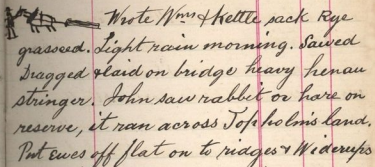 Wrote Wms & Kettle sack Rye
grasseed. Light rain morning. Sawed
Dragged & laid on bridge heavy henau
stringer. John saw rabbit or hare on
reserve, it ran across Topholm's land.
Put ewes off flat on to ridges & Widerups